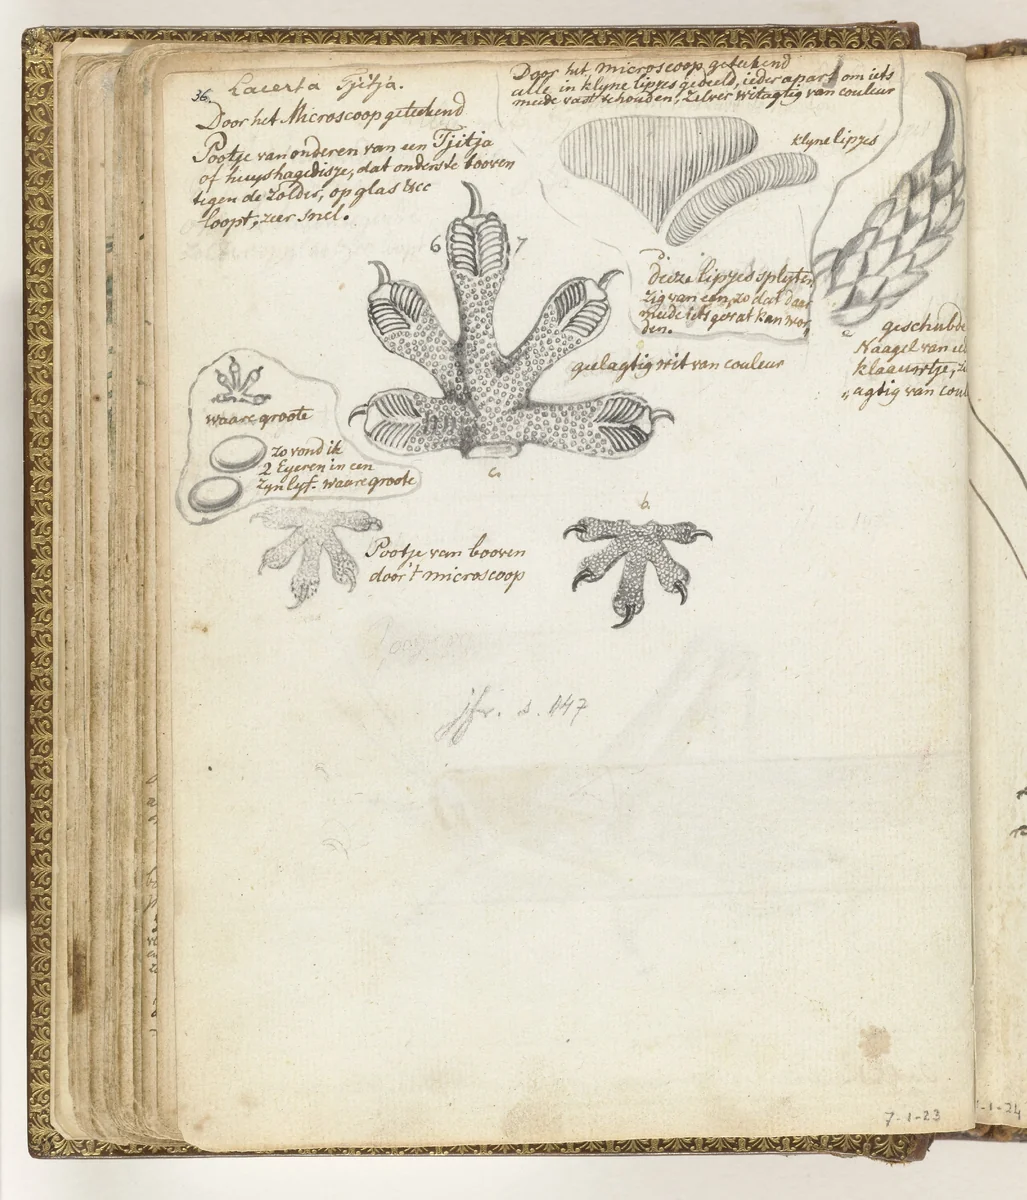 36.
Lacerta Tjitjà.
Door het Microscoop geteekend
Pootje van onderen van een Tjitja
of huyshagedisje, dat onderste booven
tigen de zolder, op glas &cc
loopt, zeer snel.
Door het microscoop geteekend
alle in klyne lipjes gedeeld, ieder apart om iets
meede vast te houden, zilver witagtig van couleur
klyne lipjes
Deeze lipjes splyten
zig van een, zo dat daar
meede iets gevat kan wor
den.
geschubde
Naagel van een
klaauwtje,
agtig van coul
6 7
geelagtig wit van couleur
waare groote
zo vond ik
2 Eyeren in een
zyn lyf. waare groote
c.
b.
Pootje van booven
door 't microscoop
147
7-1-23
1-24